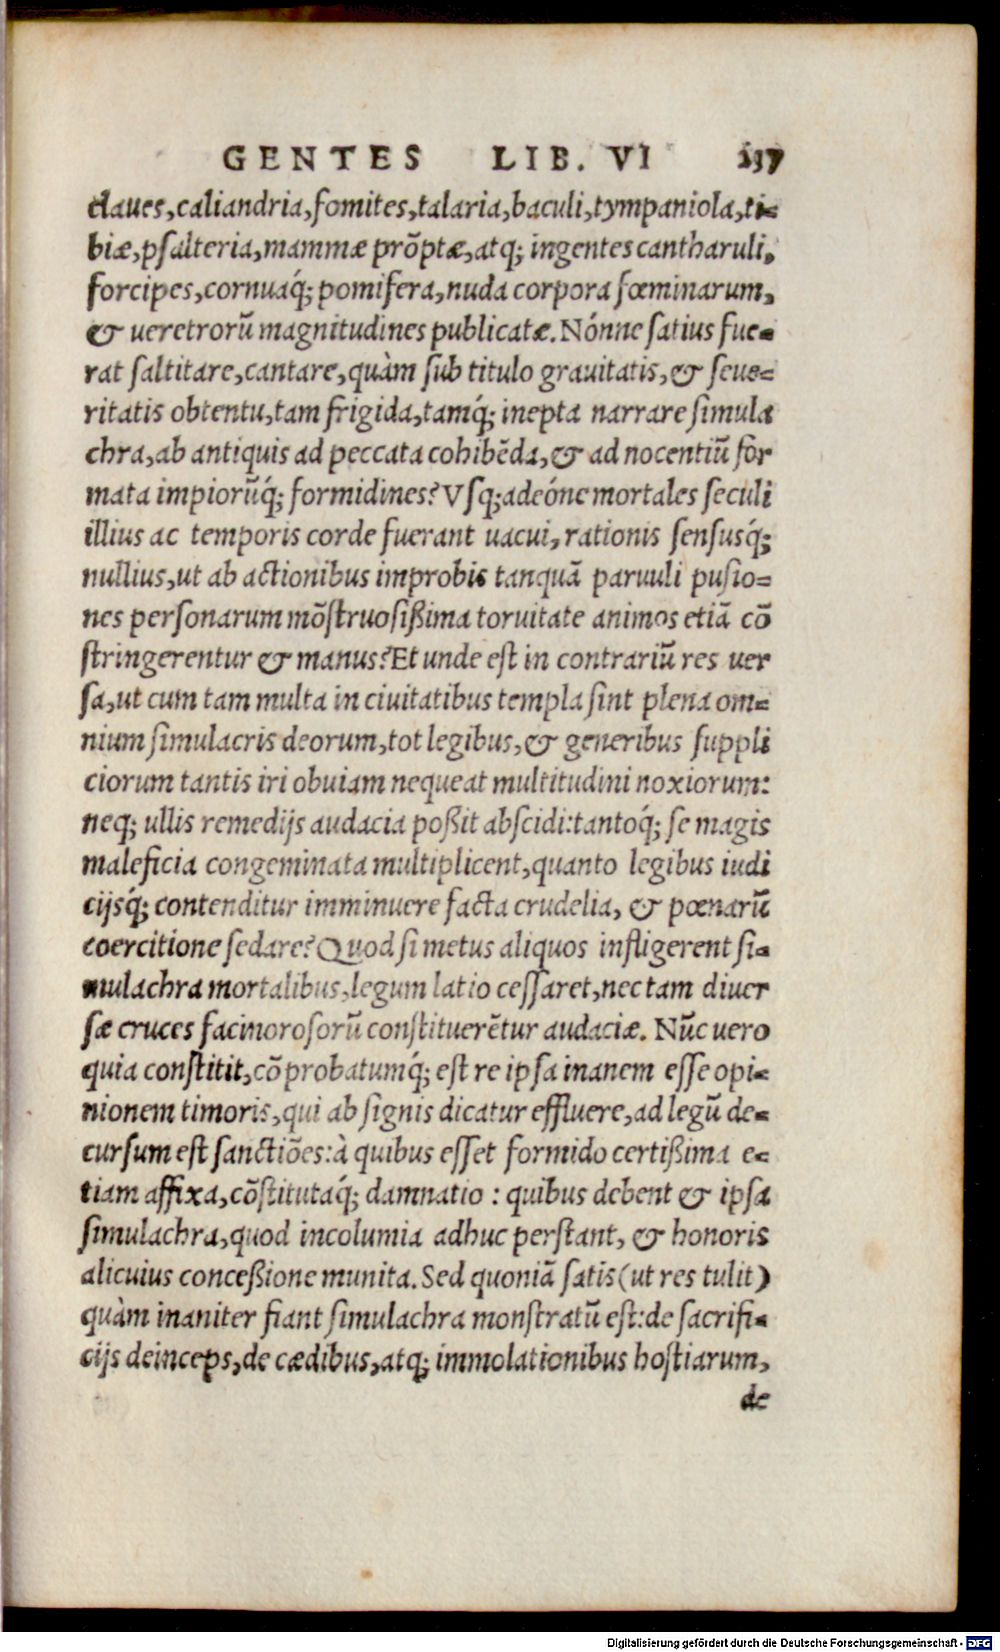 GENTES LIB. VI 137
claues,caliandria,fomites,talaria,baculi,tympaniola,ti-
biæ,psalteria,mammæ prõptæ,atq; ingentes cantharuli,
forcipes,cornuaq́; pomifera,nuda corpora fœminarum,
& ueretrorũ magnitudines publicatæ. Nónne satius fue-
rat saltitare,cantare,quàm sub titulo grauitatis,& seue-
ritatis obtentu,tam frigida,tamq́; inepta narrare simula
chra,ab antiquis ad peccata cohibẽda,& ad nocentiũ for
mata impiorũq́; formidines? Vsq;adeóne mortales seculi
illius ac temporis corde fuerant uacui,rationis sensusq́;
nullius,ut ab actionibus improbis tanquã paruuli pusio-
nes personarum mõstruosißima toruitate animos etiã cõ
stringerentur & manus? Et unde est in contrariũ res uer
sa,ut cum tam multa in ciuitatibus templa sint plena om-
nium simulacris deorum,tot legibus,& generibus suppli
ciorum tantis iri obuiam nequeat multitudini noxiorum:
neq; ullis remedijs audacia poßit abscidi:tantoq́; se magis
maleficia congeminata multiplicent,quanto legibus iudi
cijsq́; contenditur imminuere facta crudelia, & pœnarũ
coercitione sedare? Quod si metus aliquos infligerent si-
mulachra mortalibus,legum latio cessaret,nec tam diuer
sæ cruces facinorosorũ constituerẽtur audaciæ. Nũc uero
quia constitit,cõprobatumq́; est re ipsa inanem esse opi-
nionem timoris,qui ab signis dicatur effluere,ad legũ de-
cursum est sanctiões:à quibus esset formido certißima e-
tiam affixa,cõstitutaq́; damnatio : quibus debent & ipsa
simulachra,quod incolumia adhuc perstant, & honoris
alicuius conceßione munita. Sed quoniã satis (ut res tulit)
quàm inaniter fiant simulachra monstratũ est:de sacrifi-
cijs deinceps,de cædibus,atq; immolationibus hostiarum,
de
Digitalisierung gefördert durch die Deutsche Forschungsgemeinschaft - DFG